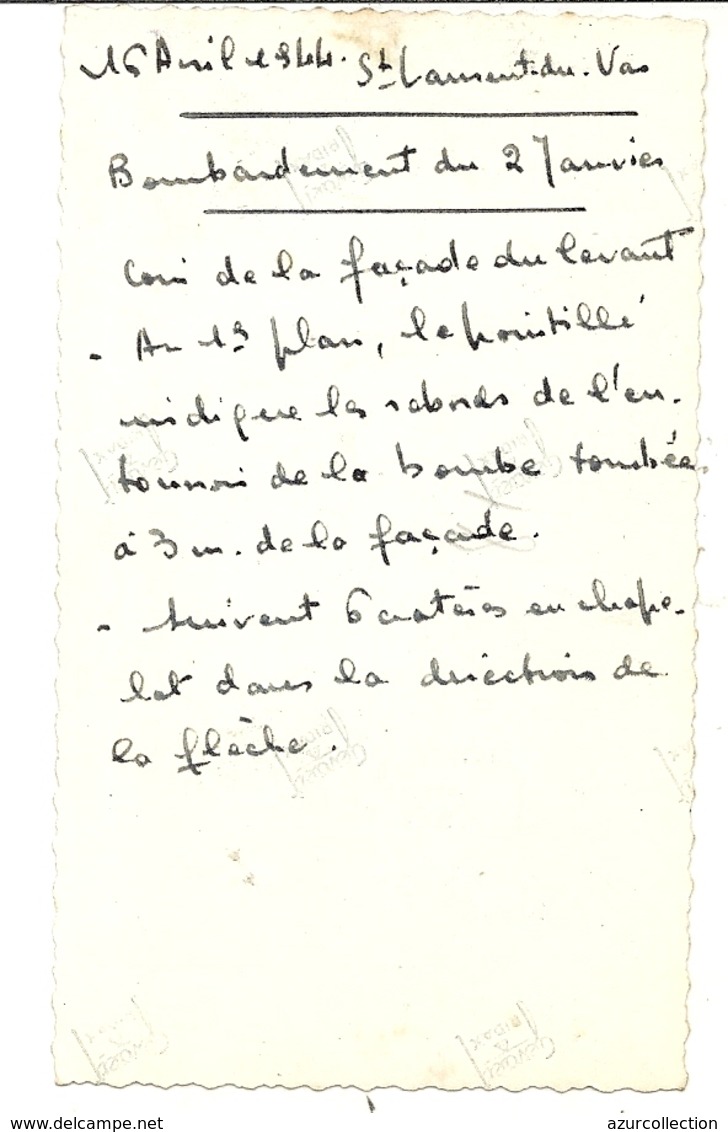 16 Avril 1944. St Laurent-du-Var
Bombardement du 2 Janvier
Coin de la façade du levant
- Au 1er plan, le pointillé
indique les rebords de l'en-
tonnoir de la bombe tombée
à 3 m. de la façade.
- Suivent 6 cratères en chape-
let dans la direction de
la flèche.
Gevaert
Ridax
www.delcampe.net
azurcollection